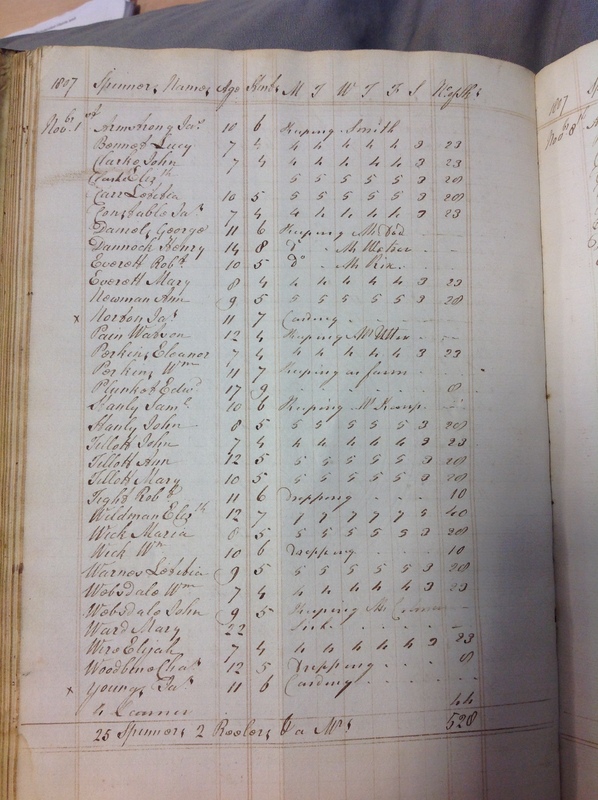 1807 Spinners Names Age Stint M T W T F S Nofsks
Novbr 1st
Armstrong Jas 10 6 Keeping Smith
Bennet Lucy 7 4 4 4 4 4 4 3 23
Clarke John 7 4 4 4 4 4 4 3 23
Clarke Elizth 5 5 5 5 5 3 28
Carr Letitia 10 5 5 5 5 5 5 3 28
Constable Jas 7 4 4 4 4 4 4 3 23
Daniels George 11 6 Keeping Mr
Dannock Henry 14 8 Do Mr
Everett Robt 10 5 Do Mr Rix
Everett Mary 8 4 4 4 4 4 4 3 23
Newman Ann 9 5 5 5 5 5 5 3 28
x Norton Jas 11 7 Carding
Pain Watson 12 4 Keeping Mr Utter
Perkins Eleanor 7 4 4 4 4 4 4 3 23
Perkins Wm 11 7 Keeping
Plunket Edwd 17 9 8
Stanly Saml 10 6 Keeping Mr Kemp
Stanly John 8 5 5 5 5 5 5 3 28
Tillott John 7 4 4 4 4 4 4 3 23
Tillott Ann 12 5 5 5 5 5 5 3 28
Tillott Mary 10 5 5 5 5 5 5 3 28
Tight Robt 11 6 Dropping 10
Wildman Elizth 12 7 7 7 7 7 7 5 40
Wick Maria 8 5 5 5 5 5 5 3 28
Wick Wm 10 6 Dropping 10
Warnes Letitia 9 5 5 5 5 5 5 3 28
Websdale Wm 7 4 4 4 4 4 4 3 23
Websdale John 9 5 Keeping Mr
Ward Mary 22 Sick
Wire Elijah 7 4 4 4 4 4 4 3 23
Woodbine Chas 12 5 Dropping 8
x Youngs Jas 11 6 Carding
4 Learners 44
25 Spinners 2 Reelers & a Ms 528
1807
Novbr 8th